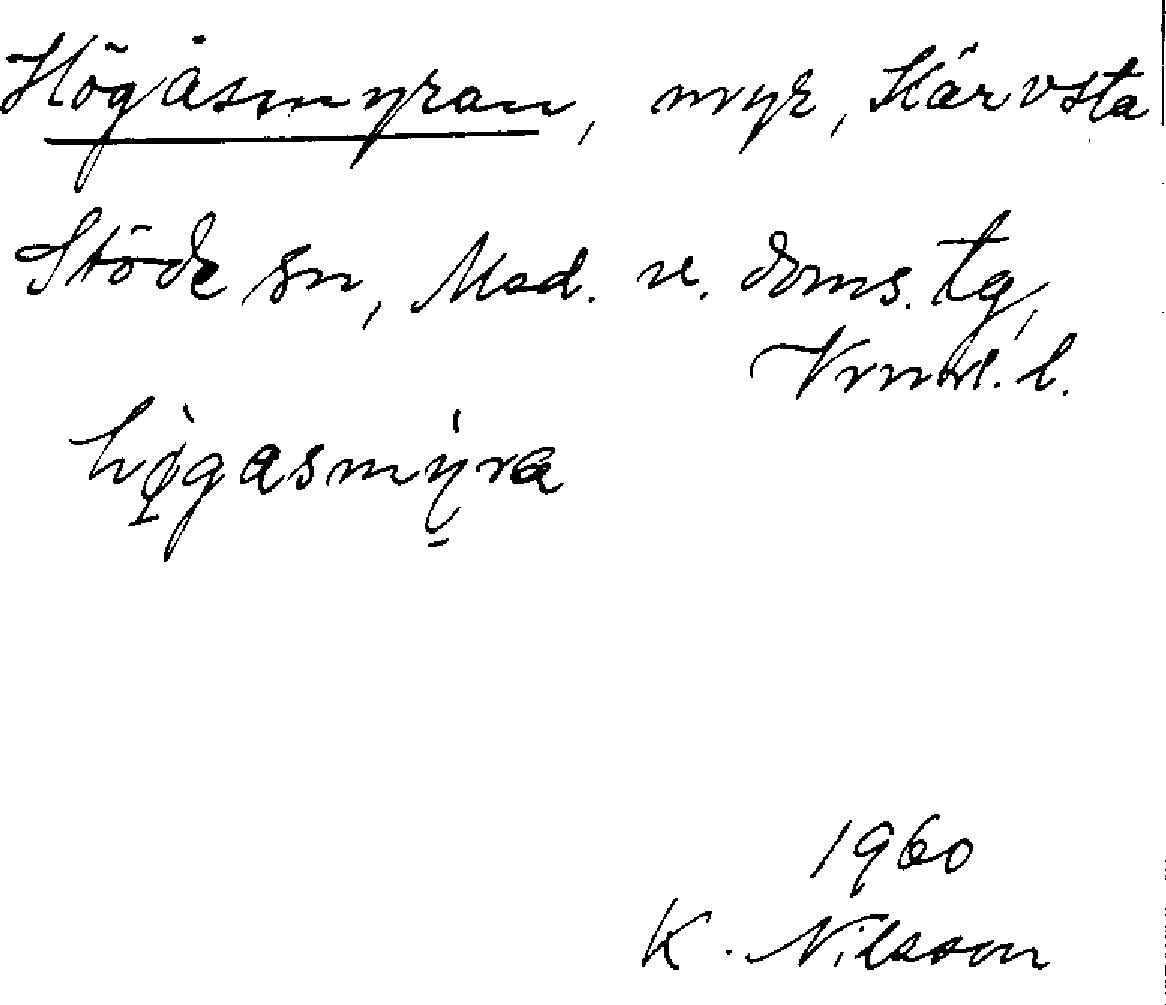 Högåsmyran, myr, Härvsta
Stöde sn, Med. v. doms. tg,
Vrnrl. l.
hø̀gasmýra
1960
K. Nilsson